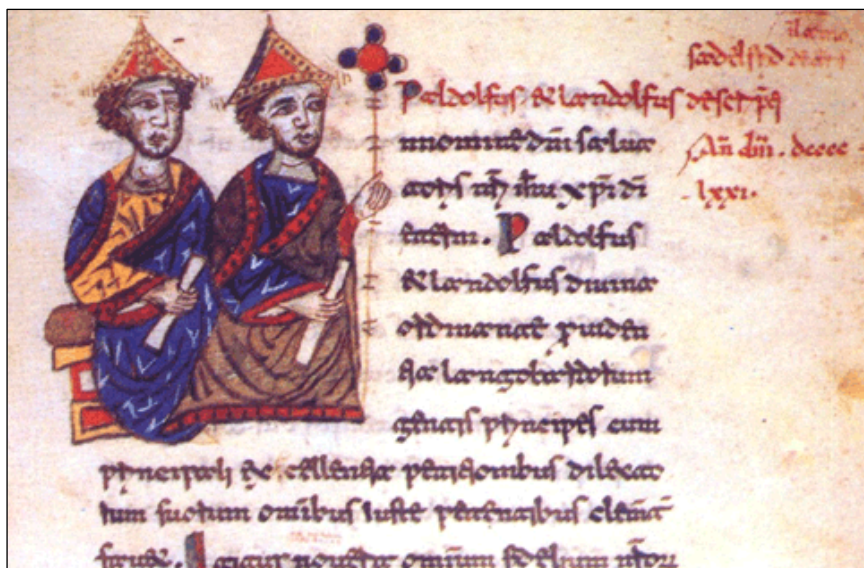 Paldolfus & landolfus
nnomine dni salua
toris nri ihu xpi di
eterni. Paldolfus
& landolfus diuina
ordinante puiden
tia langobardorum
gentis principes cum
principali excellentia petitionibus dilecto
rum suorum omibus iuste petentibus
Igitur nouerit omium fidelium
An dni. dcccc
lxxi.